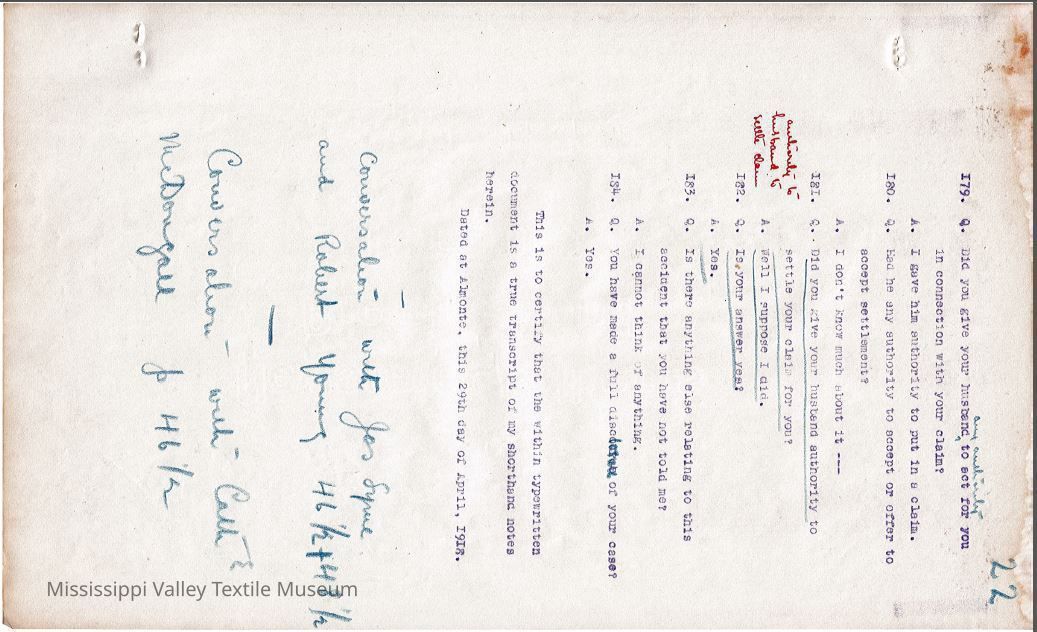 22
any authority
179. Q. Did you give your husband, to act for you
in connection with your claim?
A. I gave him authority to put in a claim.
180. Q. Had he any authority to accept or offer to
accept settlement?
A. I don't know much about it ---
181. Q. Did you give your husband authority to
settle your claim for you?
authority to
husband to
settle claim
A. Well I suppose I did.
182. Q. Is your answer yes?
A. Yes.
183. Q. Is there anything else relating to this
accident that you have not told me?
A. I cannot think of anything.
184. Q. You have made a full of your case?
A. Yes.
This is to certify that the within typewritten
document is a true transcript of my shorthand notes
herein.
Dated at Almonte, this 29th day of April, 1918.
Conversation with Jas
and Robert Young 46 1/2 +
Conversation with Cath
McDougall p 46 1/2
Mississippi Valley Textile Museum